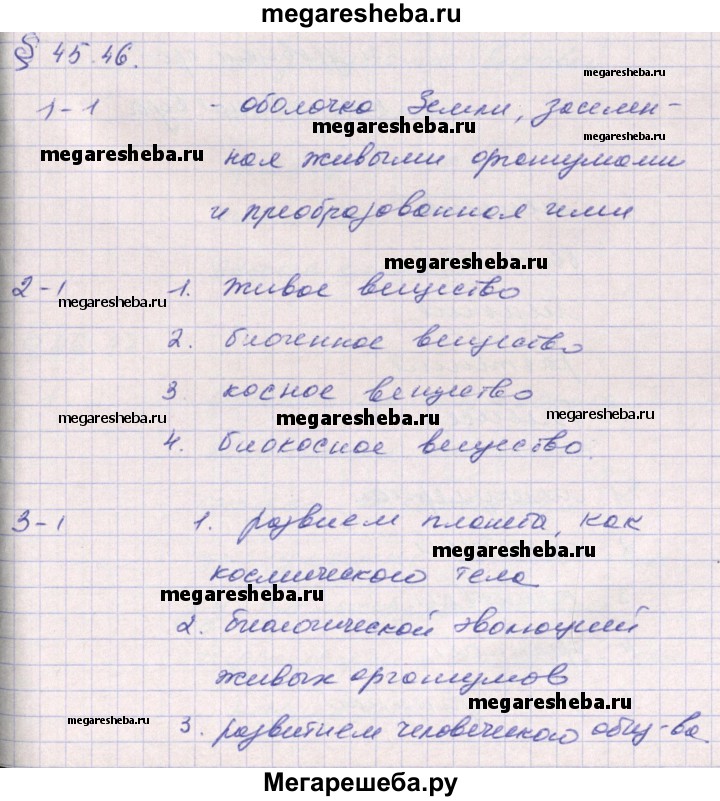 megaresheba.ru
§ 45.46.
megaresheba.ru
1-1 - оболочка Земли, заселен-
megaresheba.ru
megaresheba.ru
ная живыми организмами
и преобразованная ими
megaresheba.ru
megaresheba.ru
2-1 1. живое вещество
megaresheba.ru
2. биогенное вещество
3 косное вещество
megaresheba.ru
megaresheba.ru
megaresheba.ru
4. биокосное вещество.
3-1 1. развием планета, как
megaresheba.ru
космического тела
megaresheba.ru
2. биологической эволюцией
живых организмов
megaresheba.ru
megaresheba.ru
3. развитием человеческого общ-ва.
Мегарешеба.ру